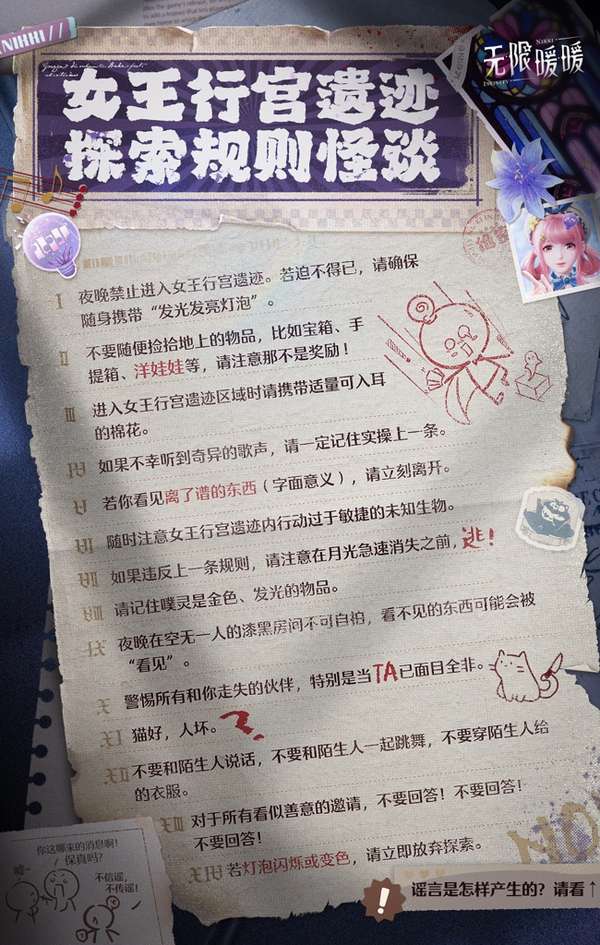 NIKKI//
无限暖暖
INFINITY NIKKI
女王行宫遗迹
探索规则怪谈
I 夜晚禁止进入女王行宫遗迹。若迫不得已，请确保
随身携带“发光发亮灯泡”。
II 不要随便捡拾地上的物品，比如宝箱、手
提箱、洋娃娃等，请注意那不是奖励！
III 进入女王行宫遗迹区域时请携带适量可入耳
的棉花。
如果不幸听到奇异的歌声，请一定记住实操上一条。
若你看见离了谱的东西（字面意义），请立刻离开。
随时注意女王行宫遗迹内行动过于敏捷的未知生物。
如果违反上一条规则，请注意在月光急速消失之前，逃！
请记住噗灵是金色、发光的物品。
夜晚在空无一人的漆黑房间不可自拍，看不见的东西可能会被
“看见”。
警惕所有和你走失的伙伴，特别是当TA已面目全非。
猫好，人坏。？
不要和陌生人说话，不要和陌生人一起跳舞，不要穿陌生人给
的衣服。
对于所有看似善意的邀请，不要回答！不要回答！
不要回答！
若灯泡闪烁或变色，请立即放弃探索。
你这哪来的消息啊！
保真吗？
嘘~
不信谣，
不传谣！
谣言是怎样产生的？请看↑